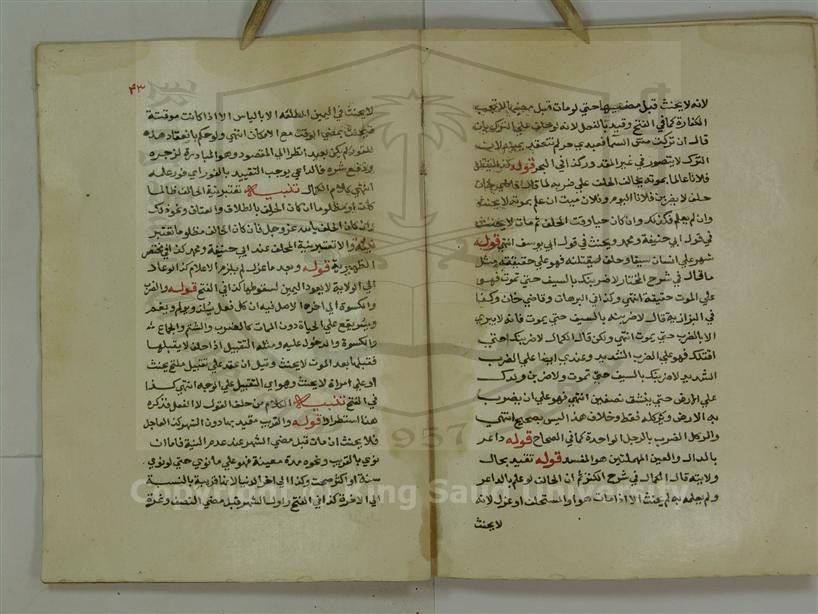 لانه لا يحنث قبل مضيها حتي لو مات قبل مضي لا تجب
الكفارة كما في الفتح وقيد بالفعل لانه لو حلف علي الترك بان
قال ان تركت مس السما فعبدي حر لم تنعقد يمينه لان
الترك لا يتصور في غير المقدور وكذا في البحر قوله
فلانا عالما بموته بخلاف الحلف علي ضربه لما قال قاضي خان
حلف لا يضربن فلانا اليوم وفلان ميت ان علم بموته لا يحنث
وان لم يعلم فكذلك وان كان حيا وقت الحلف ثم مات لا يحنث
في قول ابي حنيفة ومحمد ويحنث في قول ابي يوسف انتهي قوله
شهر علي انسان سيفا وحلف ليقتلنه فهو علي حقيقته مثل
ما قال في شرح المختار لاضربنك بالسيف حتي تموت فهو
علي الموت حقيقة انتهي وكذا في البرهان وقاضي خان وكذا
في البزازية قال لاضربنه بالسيف حتي يموت فانه لا يبري
الا بالضرب حتي يموت انتهي ولكن قال الكمال لاضربنك حتي
اقتلك فهو علي الضرب الشديد وعندي ايضا علي الضرب
الشديد لاضربنك بالسيف حتي تموت ولاضربن ولدك
علي الارض حتي ينشق نصفين انتهي فهو علي ان يضرب
به الارض ويركله فقط وخلاف هذا ليس بصحيح انتهي
والركل الضرب بالرجل الواحدة كما في الصحاح قوله داعر
بالدال والعين المهملتين هو المفسد قوله تقيد بحال
ولايته قال الكمال في شرح الكنز ثم ان الحالف لو علم بالداعر
ولم يعلمه به لم يحنث الا اذا مات هو او المستحلف او عزل لانه
لا يحنث
٤٣
لا يحنث في اليمين المطلقة الا بالياس الا اذا كانت موقتة
فيحنث بمضي الوقت مع الامكان انتهي ولو حكم بانعقاد هذه
للفور لم يكن بعيدا نظرا الي المقصود وهو المبادرة لزجره
ودفع شره فالداعي يوجب التقييد بالفور اي فور علمه
انتهي كلام الكمال تنبيه تعتبر نية الحالف ظالما
كان او مظلوما ان كان الحلف بالطلاق والعتاق ونحوه وك
وان كان الحلف بالله عز وجل فان كان الحالف مظلوما تعتبر
نيته والا تعتبر نية المحلف عند ابي حنيفة ومحمد كذا في مختصر
الظهيرية قوله وبعد ما عزل لم يلزم الاعلام كذا لو عاد
الي الولاية لا يعود اليمين لسقوطها كذا في الفتح قوله والضرب
والكسوة الي اخره الاصل فيه ان كل فعل يلذ ويولم ويغم
ويسر يقع علي الحياة دون الممات كالضرب والشتم والجماع
والكسوة والدخول عليه ومثله التقبيل اذا حلف لا يقبلها
فقبلها بعد الموت لا يحنث وقيل ان عقد علي تقبيل ملتح يحنث
او علي امراة لا يحنث وهو اي التقبيل علي الوجه انتهي كذا
في الفتح تنبيه الكلام من حلف القول لا الفعل فذكره
هنا استطرادا قوله والقريب مقيد بما دون الشهر كذا العاجل
فلا يحنث ان مات قبل مضي الشهر عند عدم النية فاما ان
نوي بالقريب ونحوه مدة معينة فهو علي ما نوي حتي لو نوي
سنة او اكثر صحت وكذا الي اخر الدنيا لانها قريبة بالنسبة
الي الاخرة كذا في الفتح واول الشهر قبل مضي النصف وغرة
1957